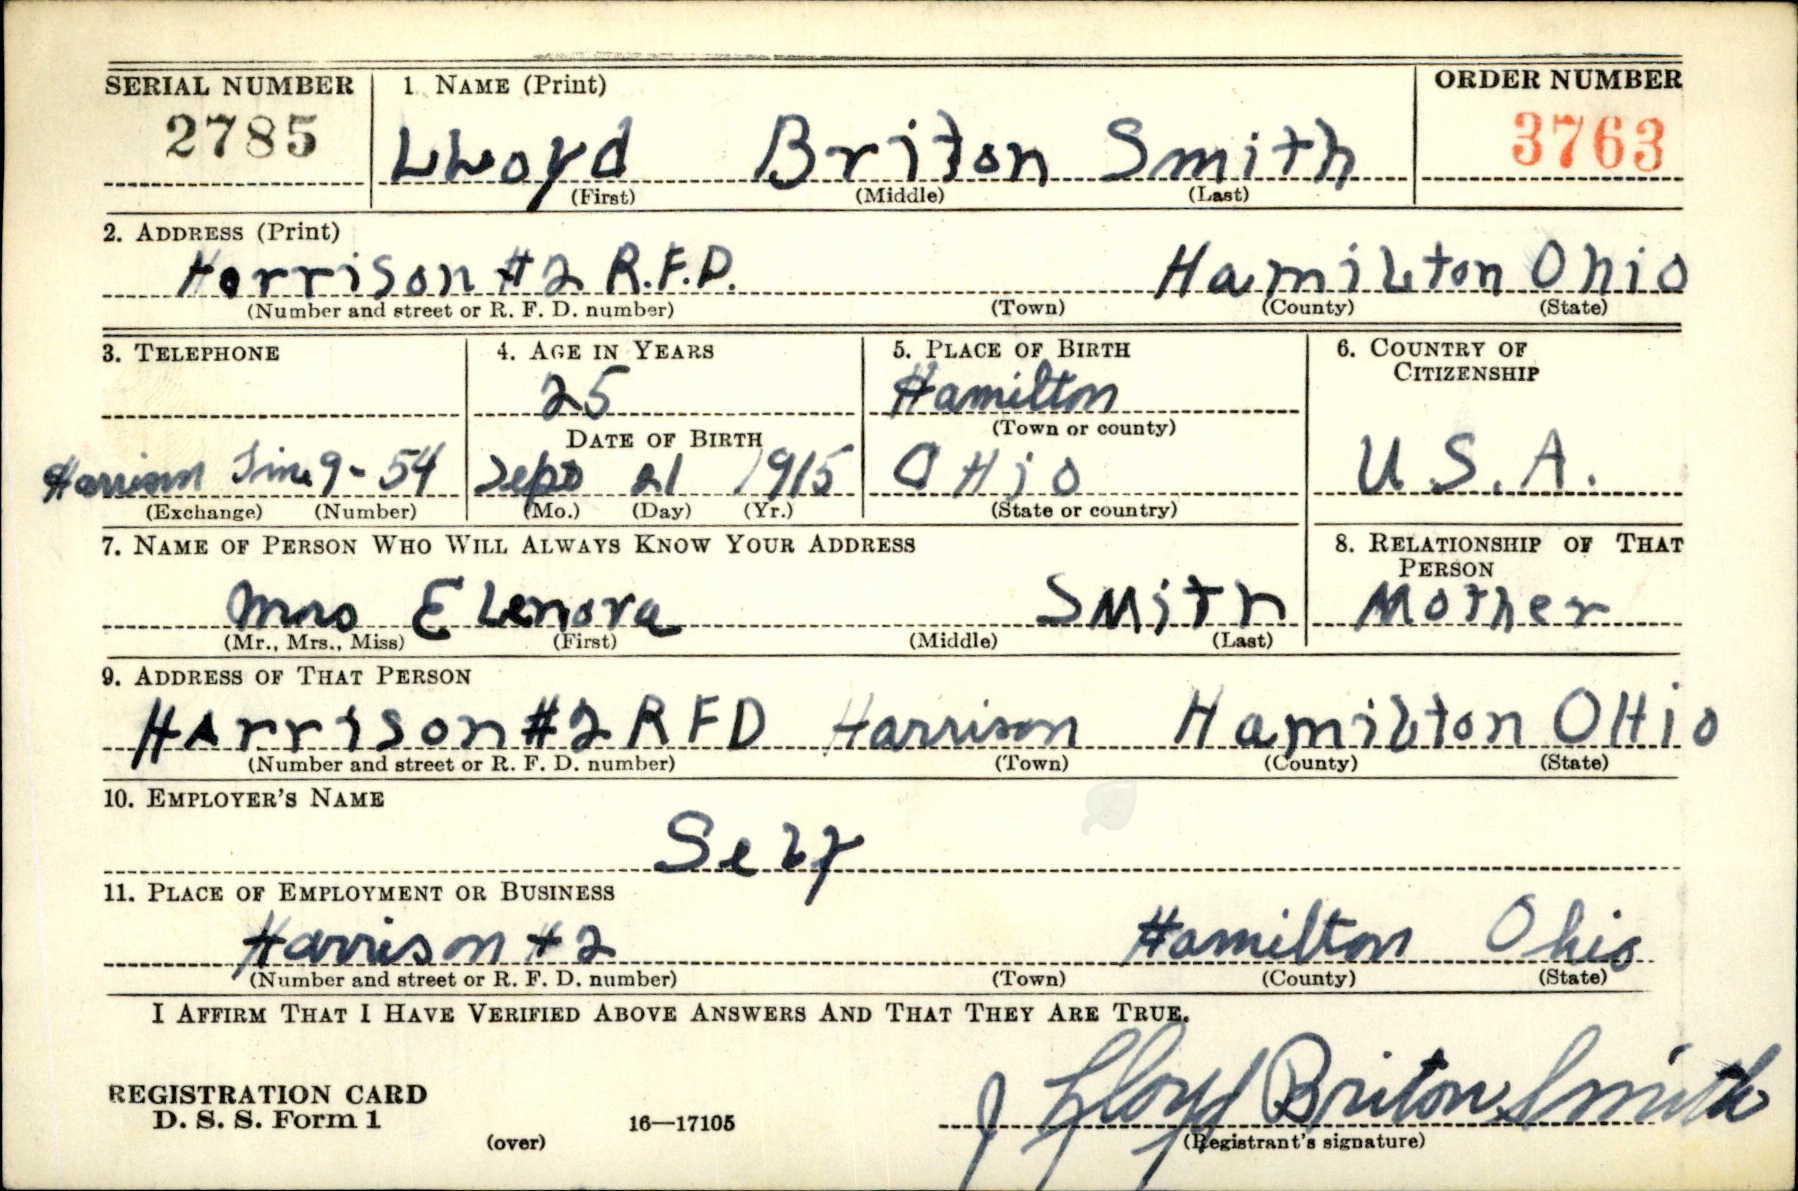 SERIAL NUMBER 1 NAME (Print) ORDER NUMBER
2785 LLoyd Briton Smith 3763
(First) (Middle) (Last)
2. ADDRESS (Print)
Harrison #2 R.F.D. Hamilton Ohio
(Number and street or R. F. D. number) (Town) (County) (State)
3. TELEPHONE 4. AGE IN YEARS 5. PLACE OF BIRTH 6. COUNTRY OF
CITIZENSHIP
25 Hamilton
DATE OF BIRTH (Town or county)
Harrison Line 9-54 Sept 21 1915 OHio U.S.A.
(Exchange) (Number) (Mo.) (Day) (Yr.) (State or country)
7. NAME OF PERSON WHO WILL ALWAYS KNOW YOUR ADDRESS 8. RELATIONSHIP OF THAT
PERSON
Mrs ELenora SMith Mother
(Mr., Mrs., Miss) (First) (Middle) (Last)
9. ADDRESS OF THAT PERSON
HArrison #2 R F D Harrison Hamilton OHio
(Number and street or R. F. D. number) (Town) (County) (State)
10. EMPLOYER'S NAME
Self
11. PLACE OF EMPLOYMENT OR BUSINESS
Harrison #2 Hamilton Ohio
(Number and street or R. F. D. number) (Town) (County) (State)
I AFFIRM THAT I HAVE VERIFIED ABOVE ANSWERS AND THAT THEY ARE TRUE.
REGISTRATION CARD
D. S. S. Form 1 16—17105 Lloyd Briton Smith
(over) (Registrant's signature)